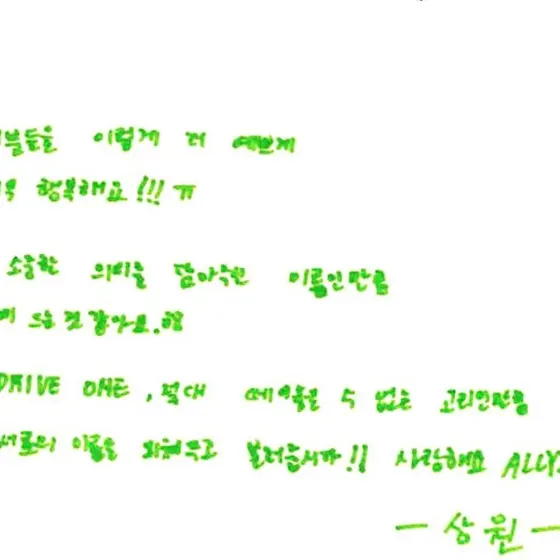 이렇게 더 예쁘게
행복해요!!! ㅠ
소중한 의미를 담아주신 이름인만큼
것 같아요.
DRIVE ONE, 절대 떼어놓을 수 없는 고리인만큼
서로의 이름을 외워두고 불러줍시다!! 사랑해요 ALLY
— 상원 —